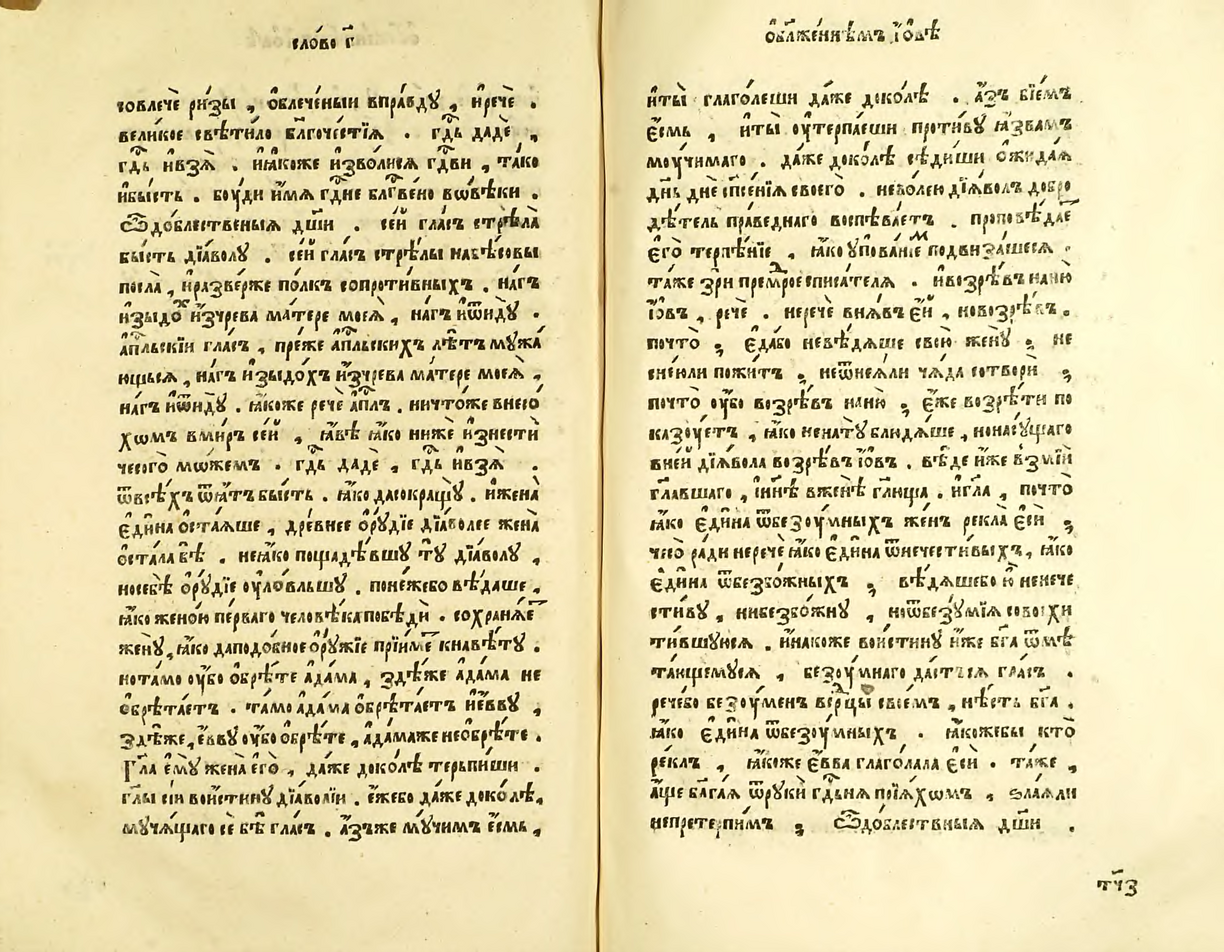 сло́во г҃
совлечѐ ри́зы , ѡ҆блече́ныи впра́вдꙋ , и҆речѐ .
вели́кое свѣти́ло бл҃гоче́стїѧ . гдⷭ҇ь дадѐ ,
гдⷭ҇ь и҆взѧ̀ . и҆ꙗ҆́коже и҆зво́лисѧ гдⷭ҇ви , та́ко
и҆бы́сть . бꙋ́ди и҆́мѧ гдⷭ҇не бл҃гве́но вѡвѣ́ки .
ѽдо́блественыѧ дш҃и . се́й гла́съ стрѣла̀
бы́сть дїа́волꙋ . се́й гла́съ стрѣ́лы набѣ́совы
посла̀ , и҆разве́рже по́лкъ сопроти́вныхъ . на́гъ
и҆зыдо́х и҆зчре́ва ма́тере моеѧ̀ , на́гъ и҆ѿидꙋ̀ .
а҆пⷭ҇льскїи гла́съ , пре́же а҆пⷭ҇льскихъ лѣ́тъ мꙋ́жа
ющьсѧ , на́гъ и҆зыдо́хъ и҆зчре́ва ма́тере моеѧ̀ ,
на́гъ и҆ѿидꙋ̀ . ꙗ҆́коже речѐ а҆пⷭ҇лъ . ничто́же внесо́
хѡмъ вми́ръ се́й , ꙗ҆́вѣ ꙗ҆́ко нижѐ и҆знестѝ
чесого̀ мо́жемъ . гдⷭ҇ь дадѐ , гдⷭ҇ь и҆взѧ̀ .
ѿвсѣ́хъ ѿѧ́тъ бы́сть . ꙗ҆́ко дасокращꙋ̀ . и҆жена̀
є҆ди́на ѡ҆ста́ѧше , дре́внее ѻ҆рꙋ́дїе дїа́волее жена̀
ѡ҆ста́ла бѣ̀ . неꙗ҆́ко пощадѣ́вшꙋ тꙋ̀ дїа́волꙋ ,
носебѣ̀ ѻ҆рꙋ́дїе ᲂу҆ло́вльшꙋ . поне́жебо вѣ́даше ,
ꙗ҆́ко жено́ю пе́рваго человѣ́ка побѣдѝ . сохранѧ́ет
женꙋ̀ , ꙗ҆́ко даподо́бное ѻ҆рꙋ́жїе прїи́мет кнавѣ́тꙋ .
нота́мо ᲂу҆́бо ѡ҆брѣ́те а҆да́ма , здѣ́же а҆да́ма не
ѡ҆брѣта́етъ . та́мо а҆да́ма ѡ҆брѣта́етъ и҆е́ввꙋ ,
здѣ́же , є҆́ввꙋ ᲂу҆́бо ѡ҆брѣ́те , а҆да́маже неѡбрѣ́те .
Гл҃а є҆мꙋ̀ жена̀ є҆гѡ̀ , да́же доко́лѣ терьпи́ши .
гл҃ы сїѝ вои́стинꙋ дїа́волїи . є҆́жебо да́же доко́лѣ ,
мꙋ́чѧщаго се́ бѣ̀ гла́съ . а҆́зъже мꙋ́чимъ є҆́смь ,
ѡ҆бл҃же́ннѣмъ і҆́ѡвѣ
и҆ты̀ глаго́леши да́же доко́лѣ . а҆́зъ бїе́мъ
є҆́смь , и҆ты̀ ᲂу҆терпѧ́еши проти́вꙋ ꙗ҆́звамъ
мꙋ́чимаго . да́же доко́лѣ сѣди́ши ѡ҆жида́ѧ
дн҃ь днѐ сп҃се́нїѧ своего̀ . небо́лею дїѧ́волъ добро
дѣ́тель пра́веднаго воспѣва́етъ . проповѣ́дает
є҆гѡ̀ терпѣ́нїе , ꙗ҆́ко ᲂупова́нїем подвиза́шеесѧ .
та́же зрѝ премⷣрое списа́телѧ . и҆возрѣ́въ на́ню
і҆́ѡвъ , речѐ . неречѐ внѧ́въ є҆́й , новозрѣ́въ .
почто̀ ; є҆да́бо невѣ́дѧше свою̀ женꙋ̀ ; не
сне́юли пожи́тъ ; неѿнеѧ́ли ча́да сотворѝ ;
почто̀ ᲂу҆́бо возрѣ́въ на́ню ; є҆́же возрѣ́ти по
казꙋ́етъ , ꙗ҆́ко нена́тꙋ блюдѧ́ше , нона́сꙋщаго
вне́й дїѧ́вола возрѣ́въ і҆́ѡвъ . вѣ́де и҆́же взмі́и
гла́вшаго , и҆ни́нѣ вженѣ̀ гл҃юща . и҆гл҃а , почто̀
ꙗ҆́ко є҆ди́на ѿбезꙋ́мныхъ же́нъ рекла̀ є҆сѝ ;
чесо̀ ра́ди неречѐ ꙗ҆́ко є҆ди́на ѿнечести́выхъ , ꙗ҆́ко
є҆ди́на ѿбезбо́жныхъ ; вѣ́дѧшебо ю҆̀ ненече
сти́вꙋ , нибезбо́жнꙋ , ноѿбезꙋ́мїѧ совосхи
ти́вшꙋюсѧ . и҆на́коже вои́стинꙋ и҆́же бг҃а ѿмѣ
та́ющемꙋсѧ , безꙋ́мнаго да́стъсѧ гла́съ .
рече́бо безꙋ́менъ всрⷣцы свое́мъ , нѣ́сть бг҃а .
ꙗ҆́ко є҆ди́на ѿбезꙋ́мныхъ . ꙗ҆́кожебы кто̀
ре́клъ , ꙗ҆́коже є҆́вва глаго́лала є҆сѝ . та́же ,
а҆́ще бл҃га́ѧ ѿрꙋкѝ гдⷭ҇ьнѧ прїѧ́хѡмъ , ѕла́ѧли
непрете́рпимъ ; ѽдо́блествныѧ дш҃и .
тч҃з